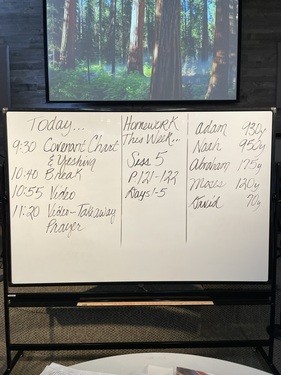 Today...
9:30 Covenant Chart
& Yeshua
10:40 Break
10:55 Video
11:20 Video - Takeaway
Prayer
Homework
This Week..
Sess 5
P 121-122
Days 1-5
Adam 930y
Noah 950y
Abraham 175y
Moses 120y
David 70y